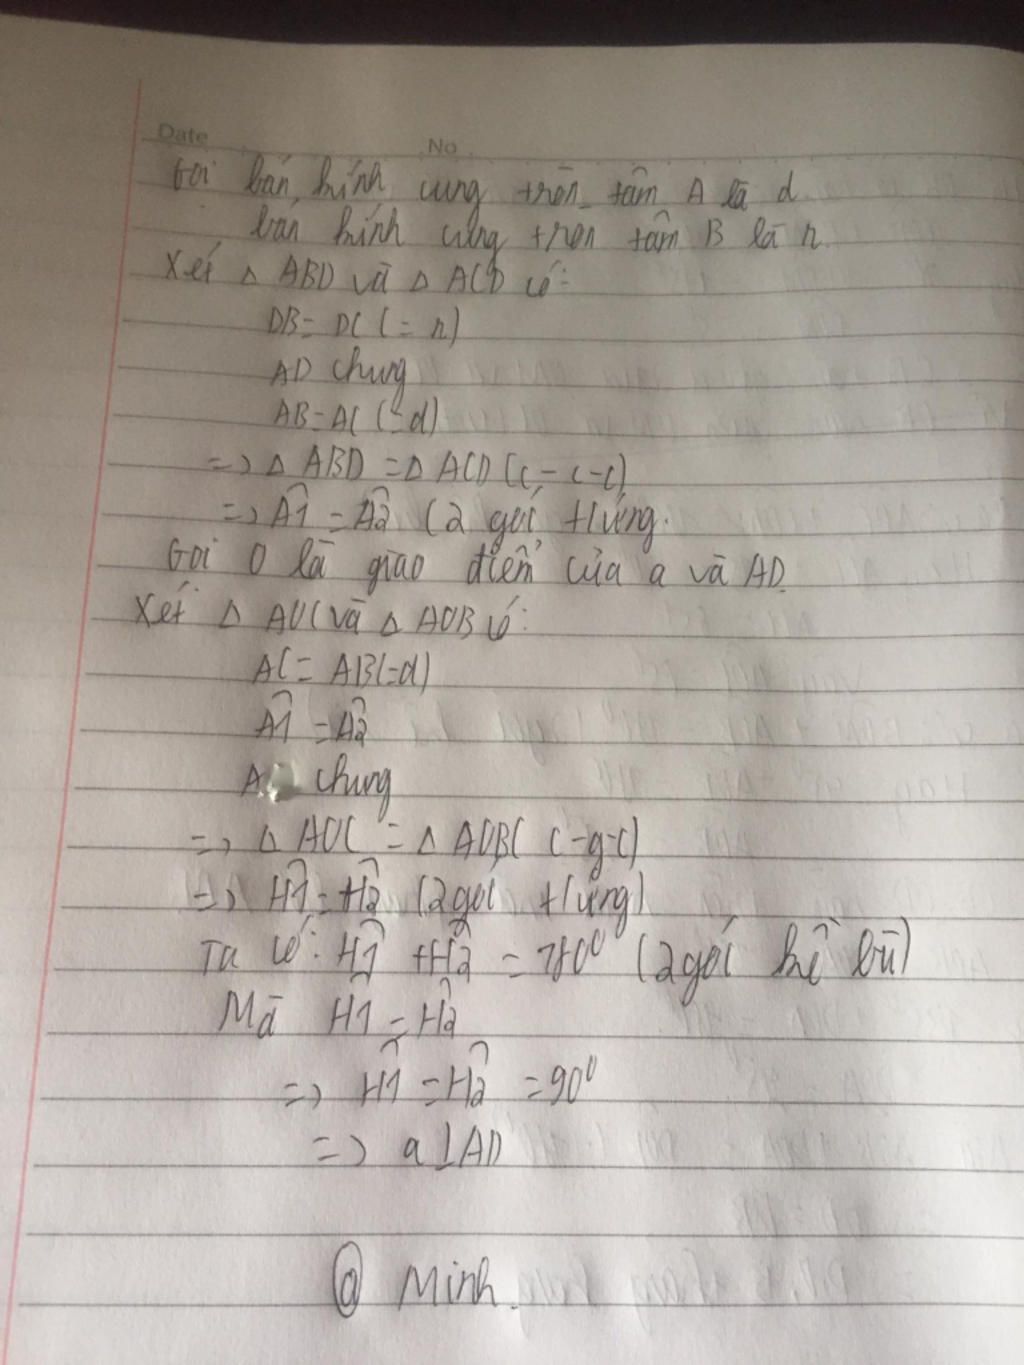 Date No
Gọi bán kính cung tròn tâm A là d
bán kính cung tròn tâm B là r.
Xét △ ABD và △ ACD có:
DB = DC (= r)
AD chung
AB = AC (= d)
=> △ ABD = △ ACD (c - c - c)
=> Â1 = Â2 (2 góc t/ứng.
Gọi O là giao điểm của a và AD.
Xét △ AOC và △ AOB có:
AC = AB (= d)
Â1 = Â2
A chung
=> △ AOC = △ AOB ( c - g - c)
=> Ĥ1 = Ĥ2 (2 góc t/ứng)
Ta có: Ĥ1 + Ĥ2 = 180⁰ (2 góc kề bù)
Mà Ĥ1 = Ĥ2
=> Ĥ1 = Ĥ2 = 90⁰
=> a ⊥ AD
@ Minh.